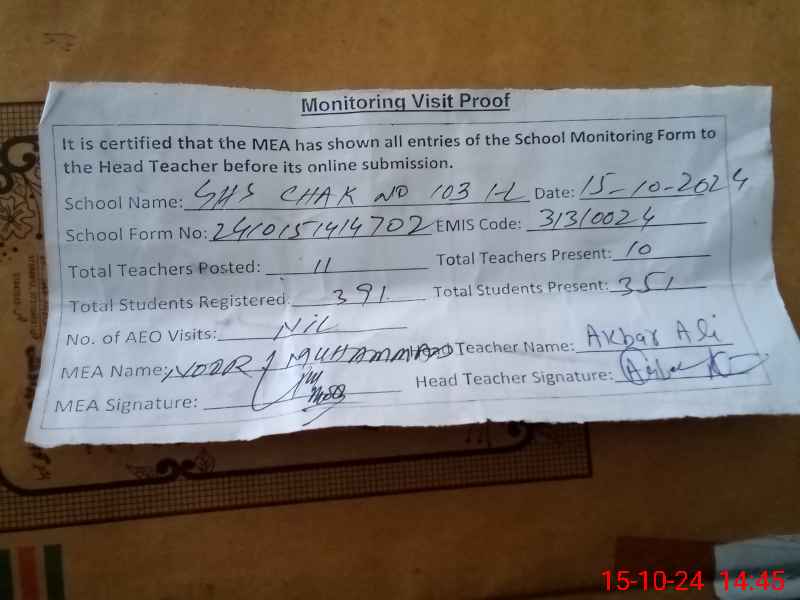 Monitoring Visit Proof
It is certified that the MEA has shown all entries of the School Monitoring Form to
the Head Teacher before its online submission.
School Name: GHS CHAK NO 103 1-L Date: 15-10-2024
School Form No: 2410151414702 EMIS Code: 31310024
Total Teachers Posted: 11 Total Teachers Present: 10
Total Students Registered: 391 Total Students Present: 351
No. of AEO Visits: NIL
MEA Name: NOOR MUHAMMAD Teacher Name: Akbar Ali
MEA Signature: Head Teacher Signature:
15-10-24 14:45